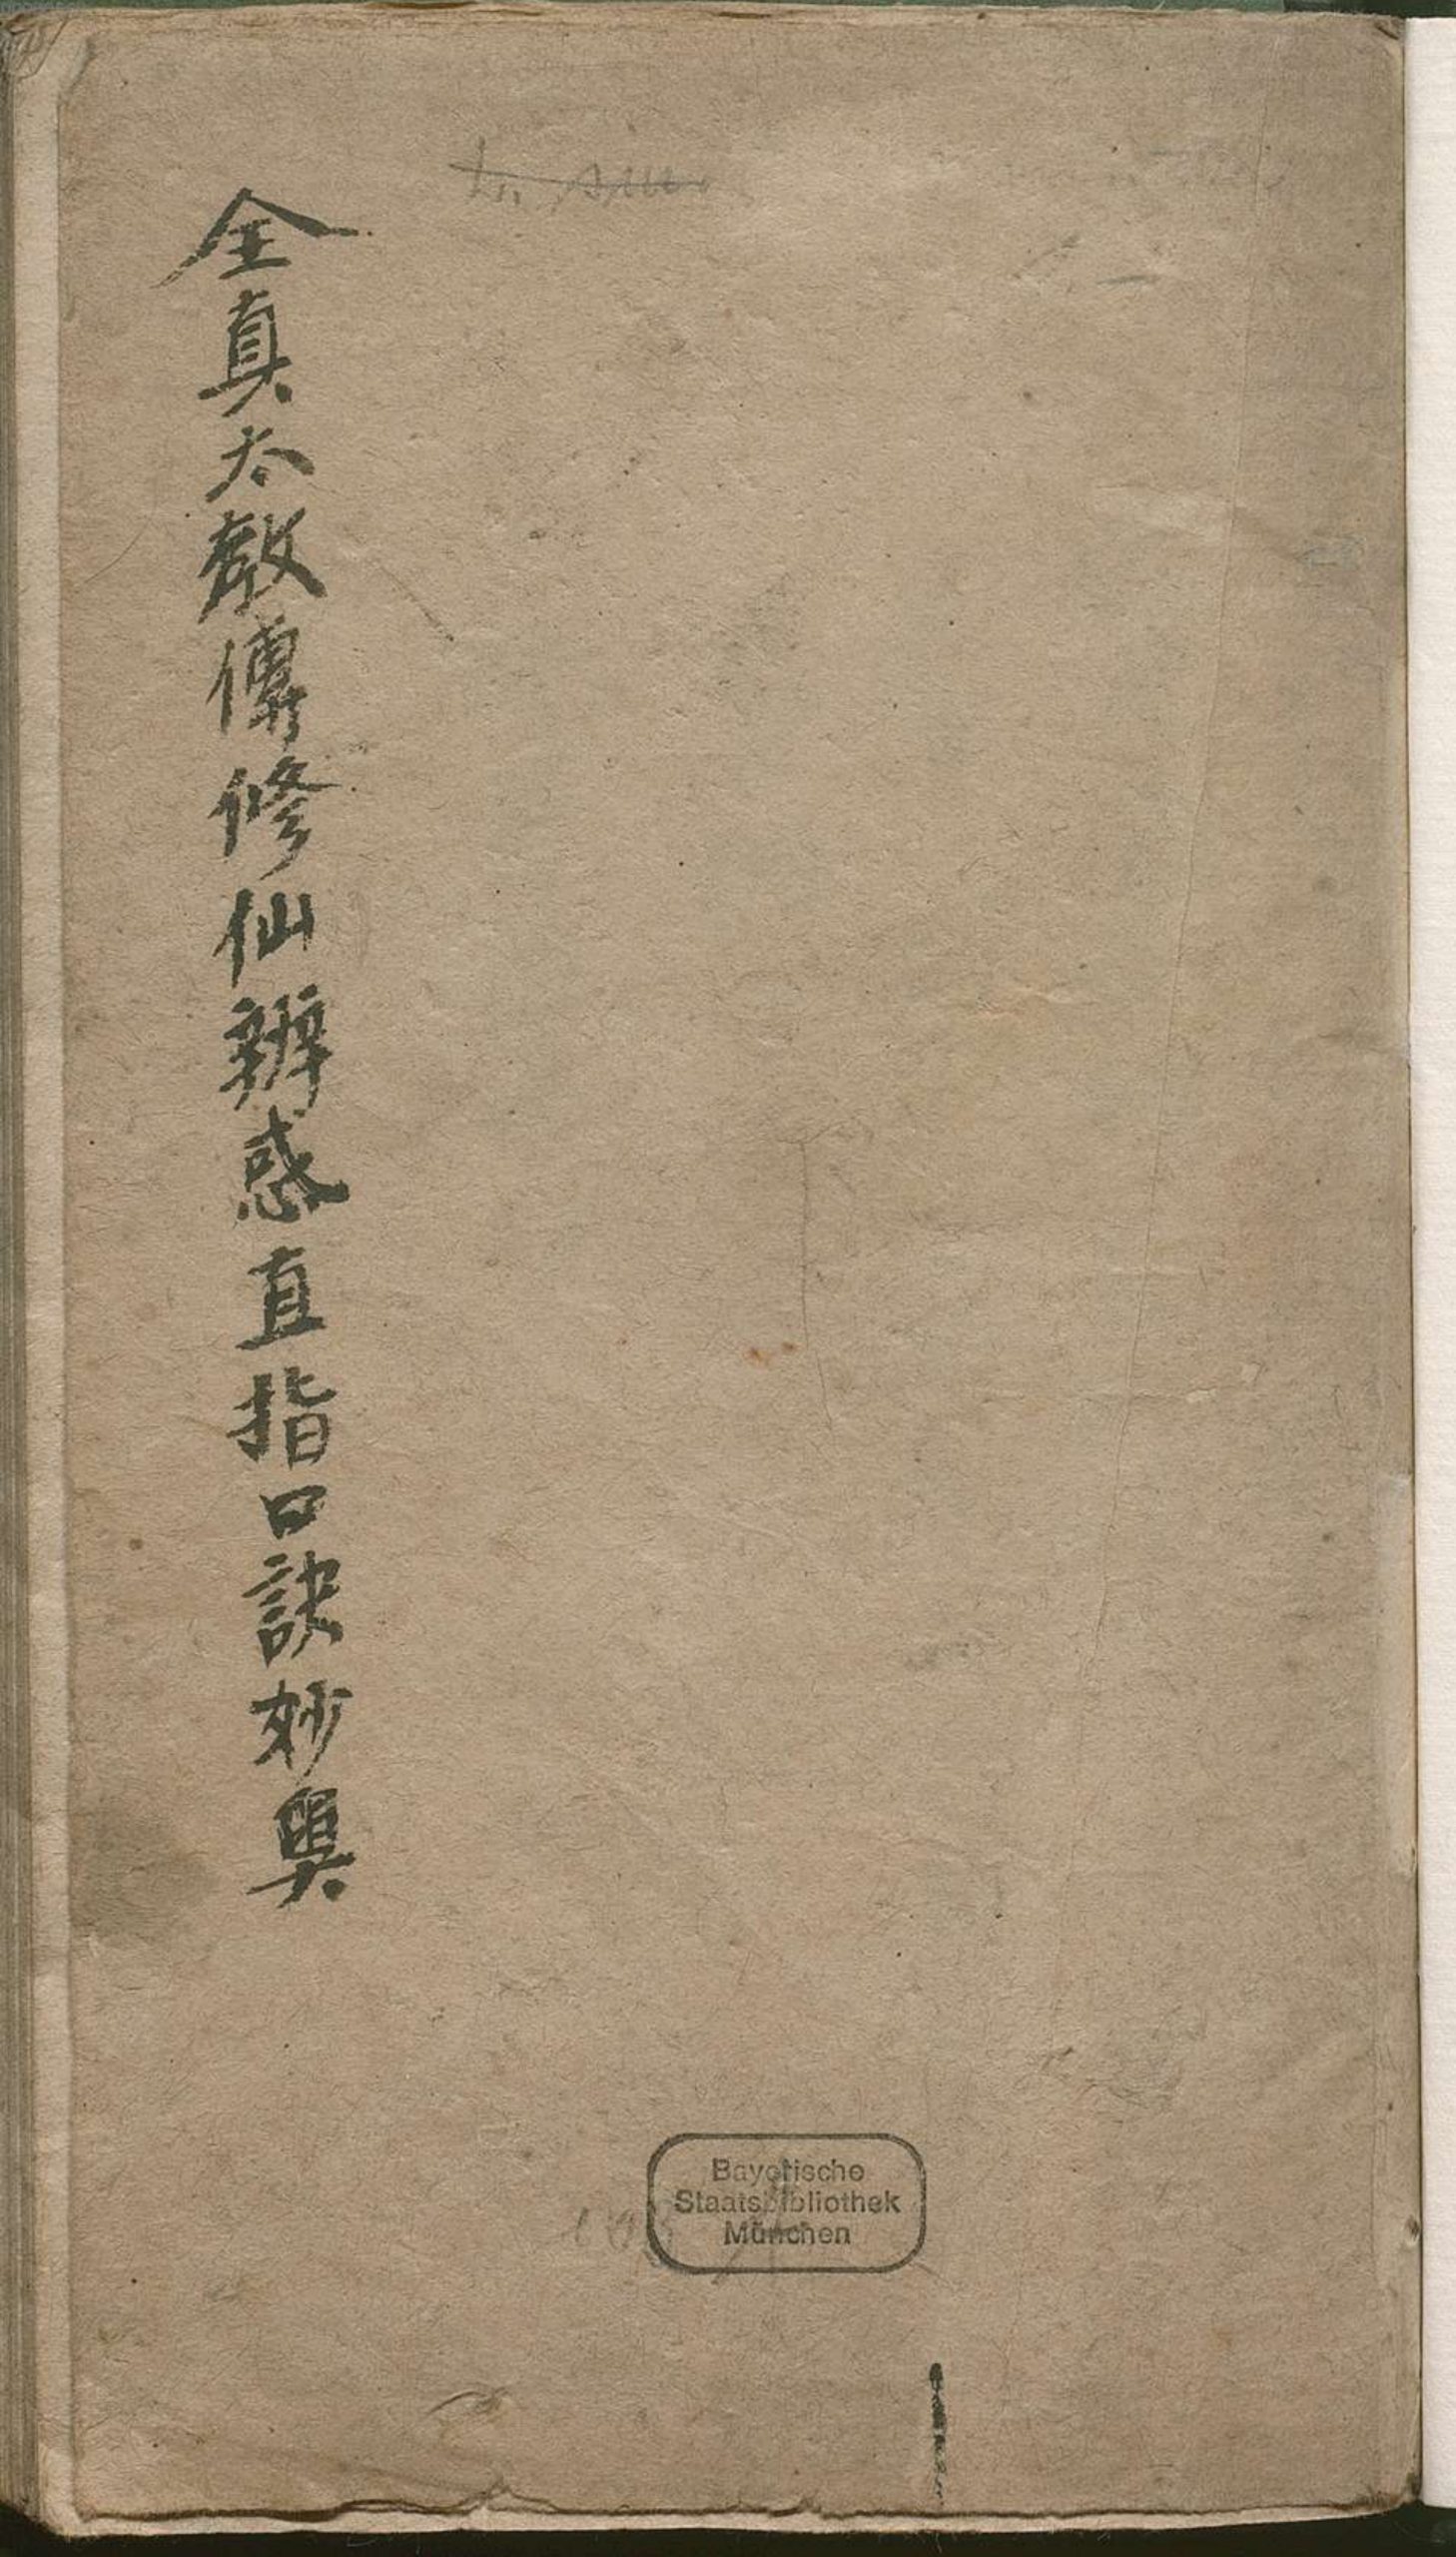 全真大教傳修仙辨惑直指口訣妙奧
Bayerische
Staatsbibliothek
München